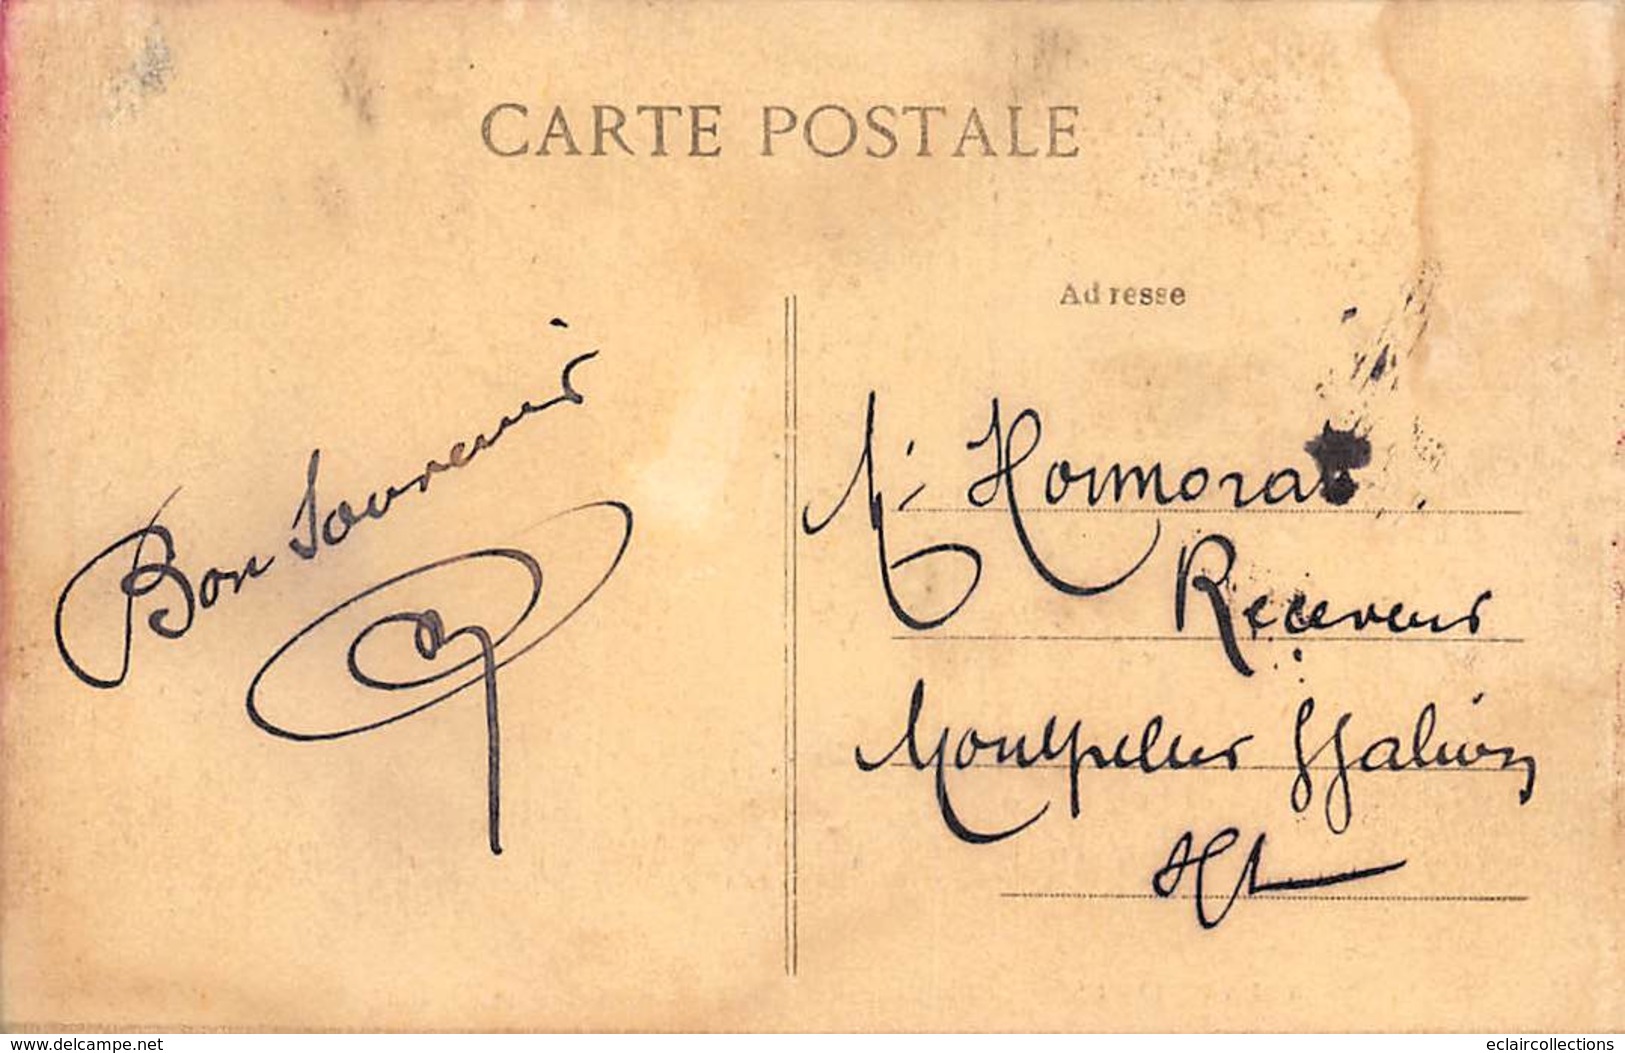 CARTE POSTALE
Adresse
Bon Souvenir
Mr Honnorat
Receveur
Montpellier
Ht
www.delcampe.net
eclaircollections